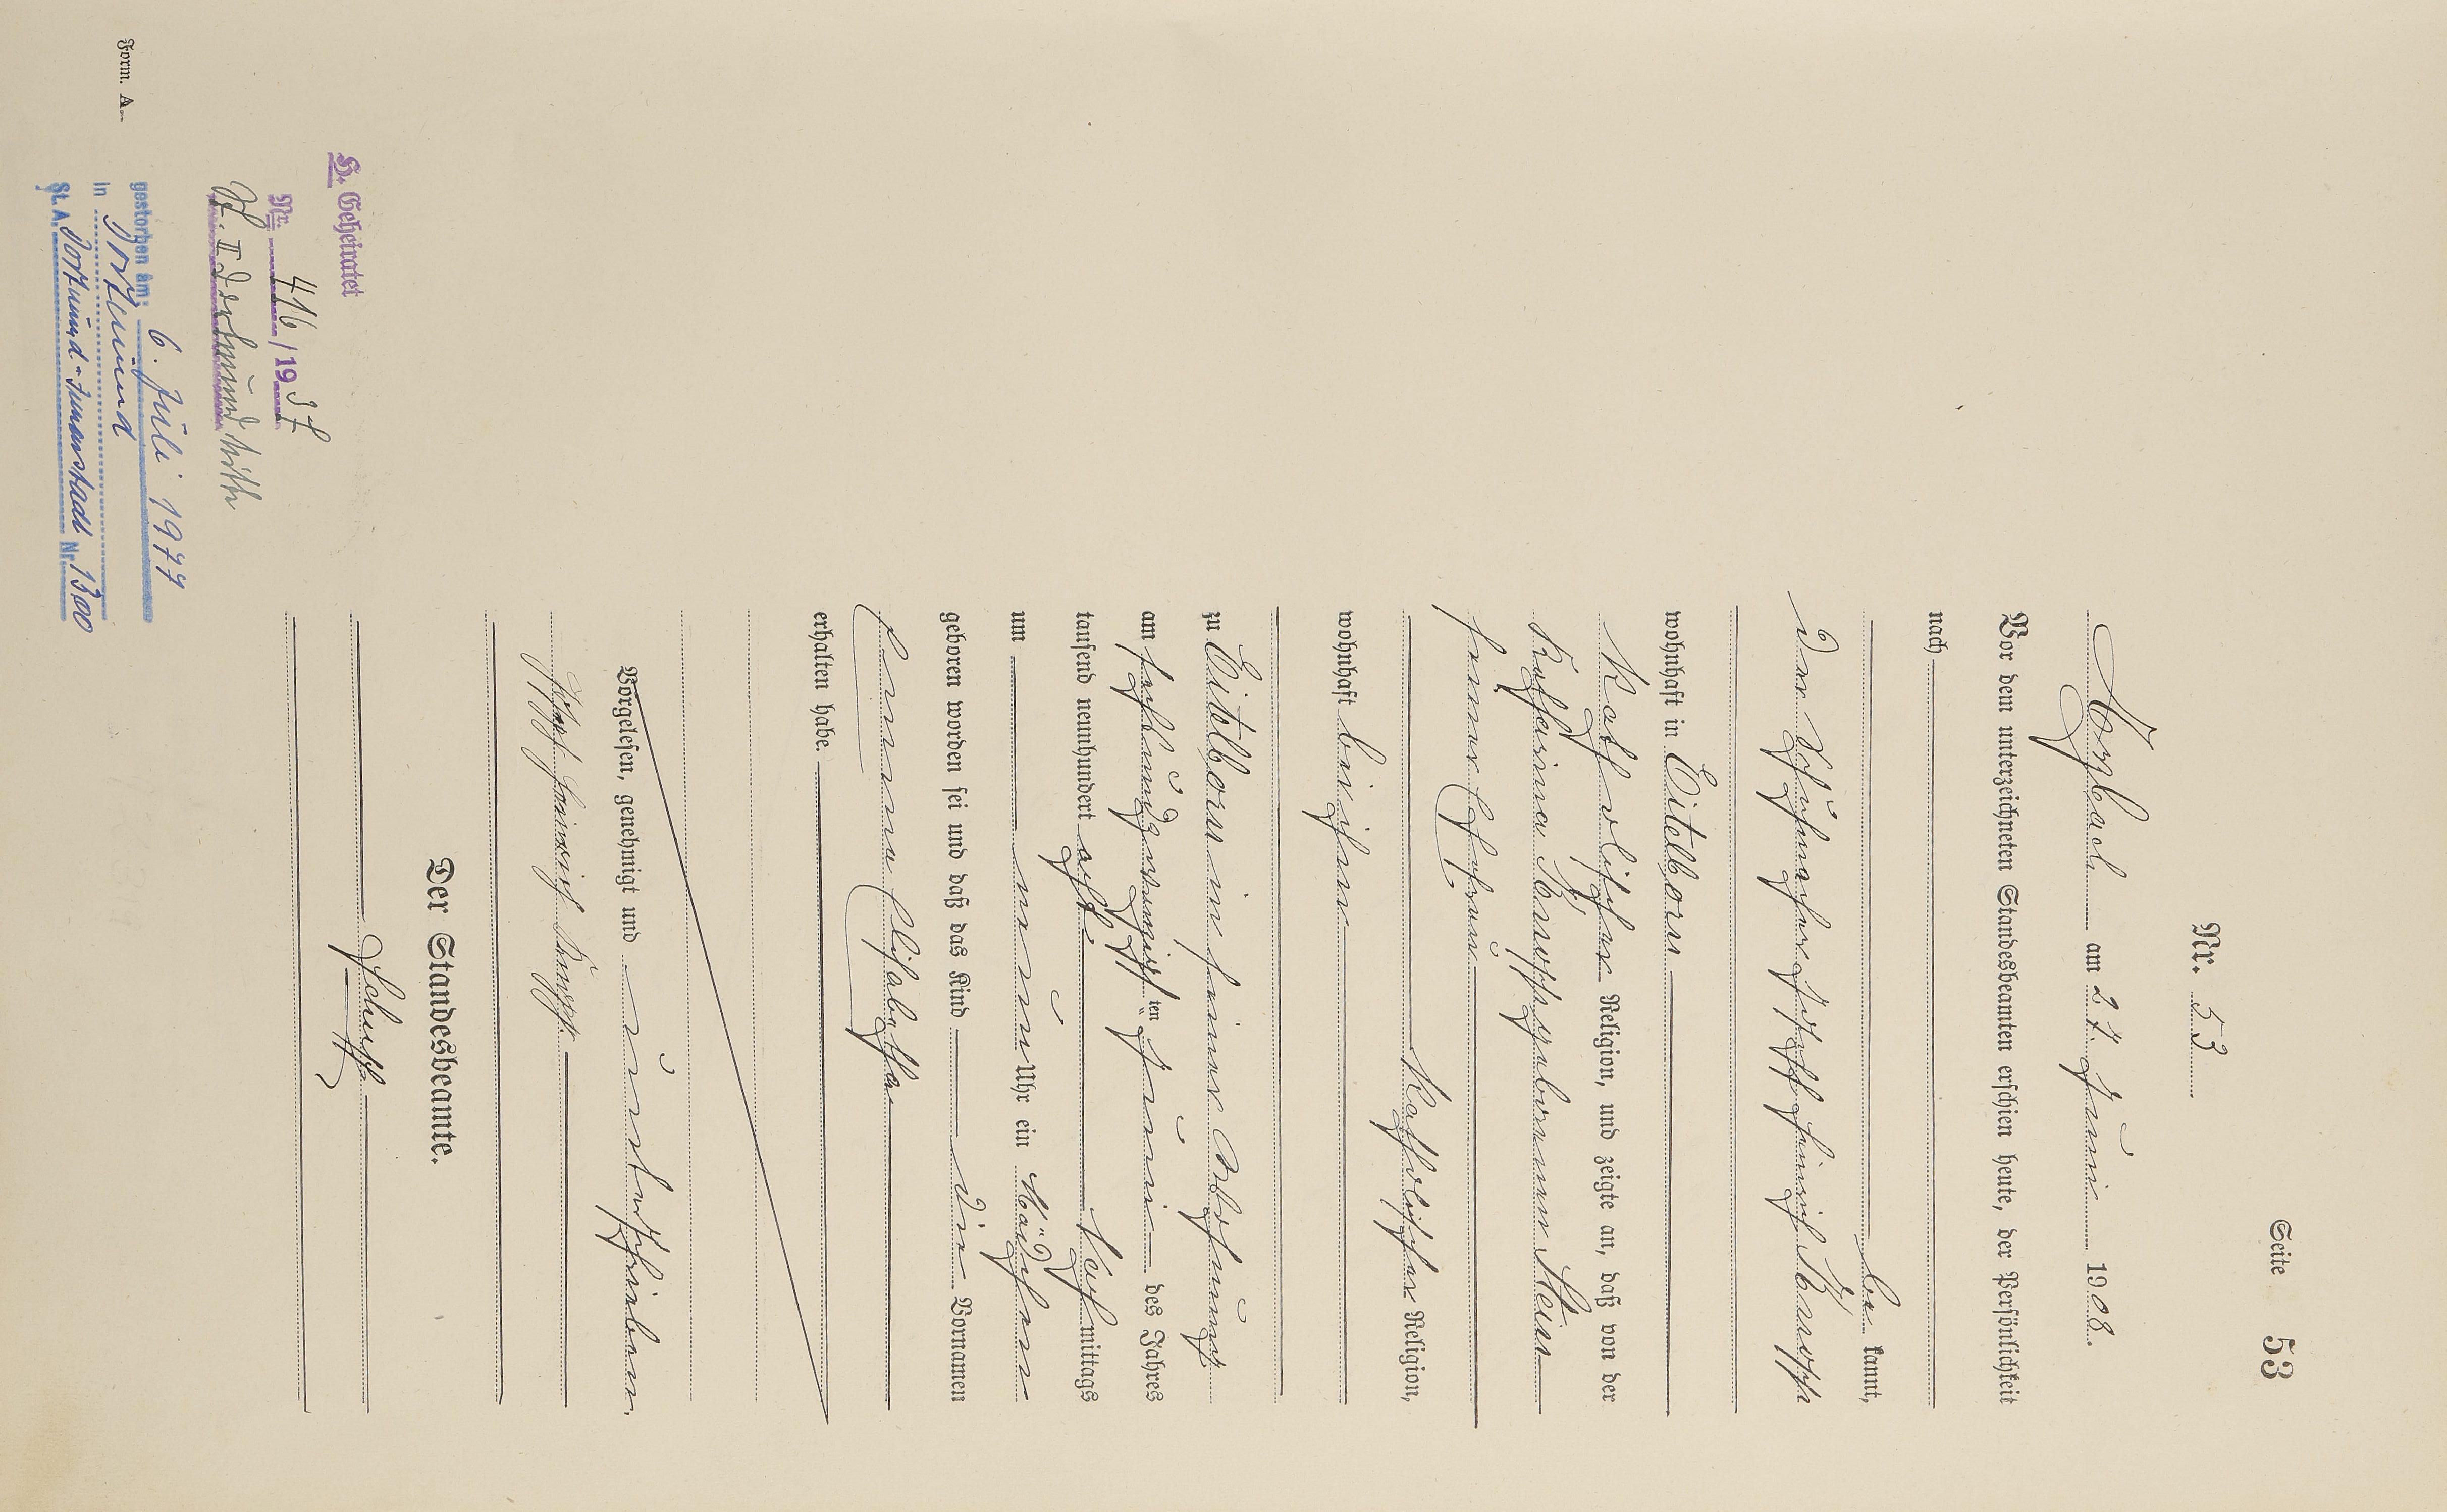 Seite 53
Nr. 53
Arzbach am 27. Juni 1908.
Vor dem unterzeichneten Standesbeamten erschien heute, der Persönlichkeit
nach
be kannt,
der Schuhmacher Joseph Heinrich Knopp
wohnhaft in Eitelborn
Katholischer Religion, und zeigte an, daß von der
Katharina Knopp geborenen Stein
seiner Ehefrau
Katholischer Religion,
wohnhaft bei ihm
zu Eitelborn in seiner Wohnung
am sechsundzwanzigsten Juni des Jahres
tausend neunhundert acht Nachmittags
um neun Uhr ein Mädchen
geboren worden sei und daß das Kind die Vornamen
Emma Elisabetha
erhalten habe.
Vorgelesen, genehmigt und unterschrieben.
Josef Heinrich Knopp.
Der Standesbeamte.
Schupp
H. Geheiratet
Nr. 416 / 1937
St. I Dortmund Mitte
gestorben am: 6. Juli 1977
in Dortmund
St. A. Dortmund-Innenstadt Nr. 1300
Form. A.